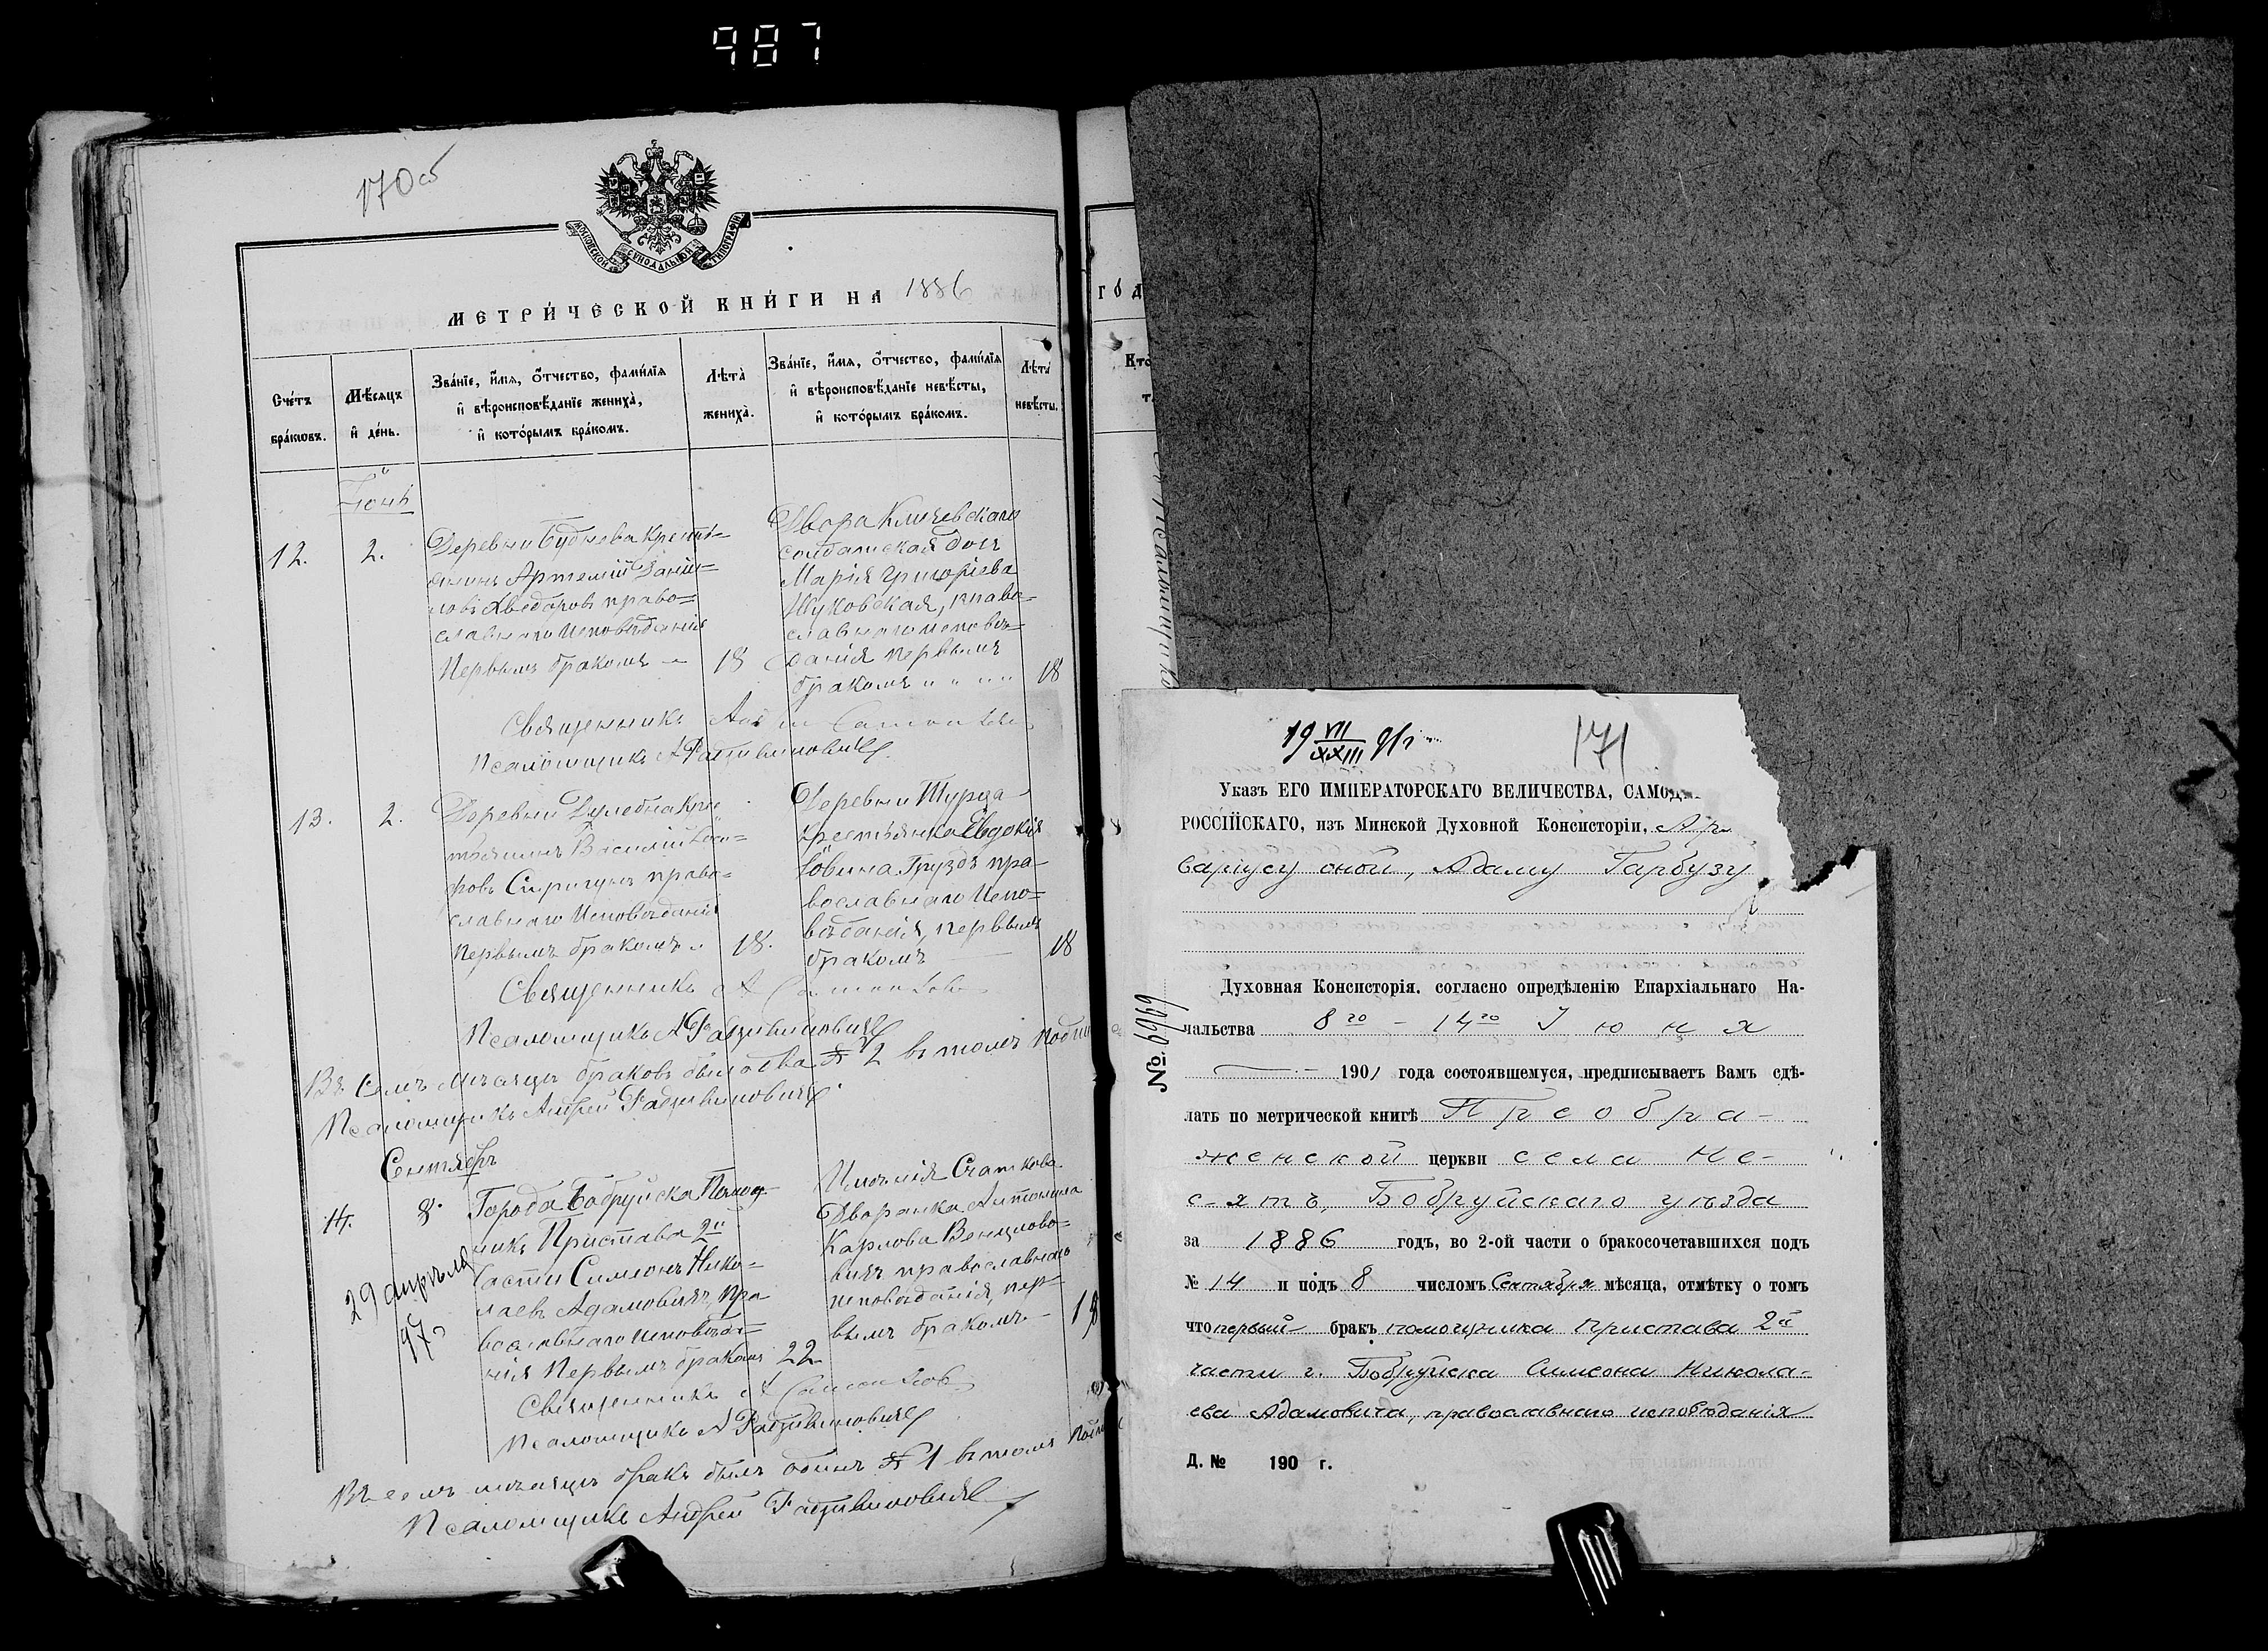 987
170 об
МОСКОВСКОЙ СѴНОДАЛЬНОЙ ТИПОГРАФІИ
МЕТРИ́ЧЕСКОЙ КНИ́ГИ НА 1886
Сче́тъ бра́кѡвъ.
Мѣ́сяцъ и҆ де́нь.
Зва́нїе, и҆́мѧ, ѻ҆́тчество, фами́лїѧ и҆ вѣроисповѣ́данїе жениха̀, и҆ кото́рымъ бра́комъ.
Лѣта̀ жениха̀.
Зва́нїе, и҆́мѧ, ѻ҆́тчество, фами́лїѧ и҆ вѣроисповѣ́данїе невѣ́сты, и҆ кото́рымъ бра́комъ.
Лѣта̀ невѣ́сты.
Іюнь
12. 2.
Деревни Буднева Кресть=
янинъ Артемій Дани=
ловъ Хведоровъ право=
славнаго исповѣданія
первымъ бракомъ 18
Двора Кличевскаго
солдатская дочь
Марія Григоріева
Жуковская, право=
славнаго исповѣ=
данія первымъ
бракомъ 18
Священникъ
Псаломщикъ А Радзивиновичъ
13. 2.
Деревни Дулебна Кре
стьянинъ Василій Іоси=
фовъ Спригунъ право=
славнаго исповѣданія
первымъ бракомъ 18.
Деревни Шурда
крестьянка Евдокія
Іовина Груздъ пра-
вославнаго испо=
вѣданія, первымъ
бракомъ 18
Священникъ А
Псаломщикъ А Радзивиновичъ
Въ семъ мѣсяцѣ браковъ было два № 2 въ томъ подпи
Псаломщикъ Андрей Радзивиновичъ
Сентябрь
14. 8.
29 апрѣля
97 г
Города Бобруйска Помощ
никъ Пристава 2й
Части Симеонъ Нико=
лаевъ Адамовичъ, пра
вославнаго исповѣда=
нія первымъ бракомъ 22
Имѣнія Сматкова
Дворянка Антонина
Карлова Венцлово=
вичъ православнаго
исповѣданія, пер=
вымъ бракомъ 18
Священникъ А
Псаломщикъ А Радзивиновичъ
Въ семъ мѣсяцѣ бракъ былъ одинъ № 1 въ томъ
Псаломщикъ Андрей Радзивиновичъ
ГО́Д
Кто
19 VII/XXIII 01 г
171
Указъ ЕГО ИМПЕРАТОРСКАГО ВЕЛИЧЕСТВА, САМОД
РОССІЙСКАГО, изъ Минской Духовной Консисторіи, Ар
варіусу оной, Адаму Гарбузу
Духовная Консисторія, согласно опредѣленію Епархіальнаго На-
чальства 8го - 14го Іюня
1901 года состоявшемуся, предписываетъ Вамъ сдѣ-
лать по метрической книгѣ Преобра-
женской церкви села Не-
сятъ, Бобруйскаго уѣзда
за 1886 годъ, во 2-ой части о бракосочетавшихся подъ
№ 14 и подъ 8 числомъ Сентября мѣсяца, отмѣтку о томъ
что первый бракъ помощника пристава 2й
части г. Бобруйска Симеона Никола-
ева Адамовича, православнаго исповѣданія
Д. № 190 г.
№ 6969